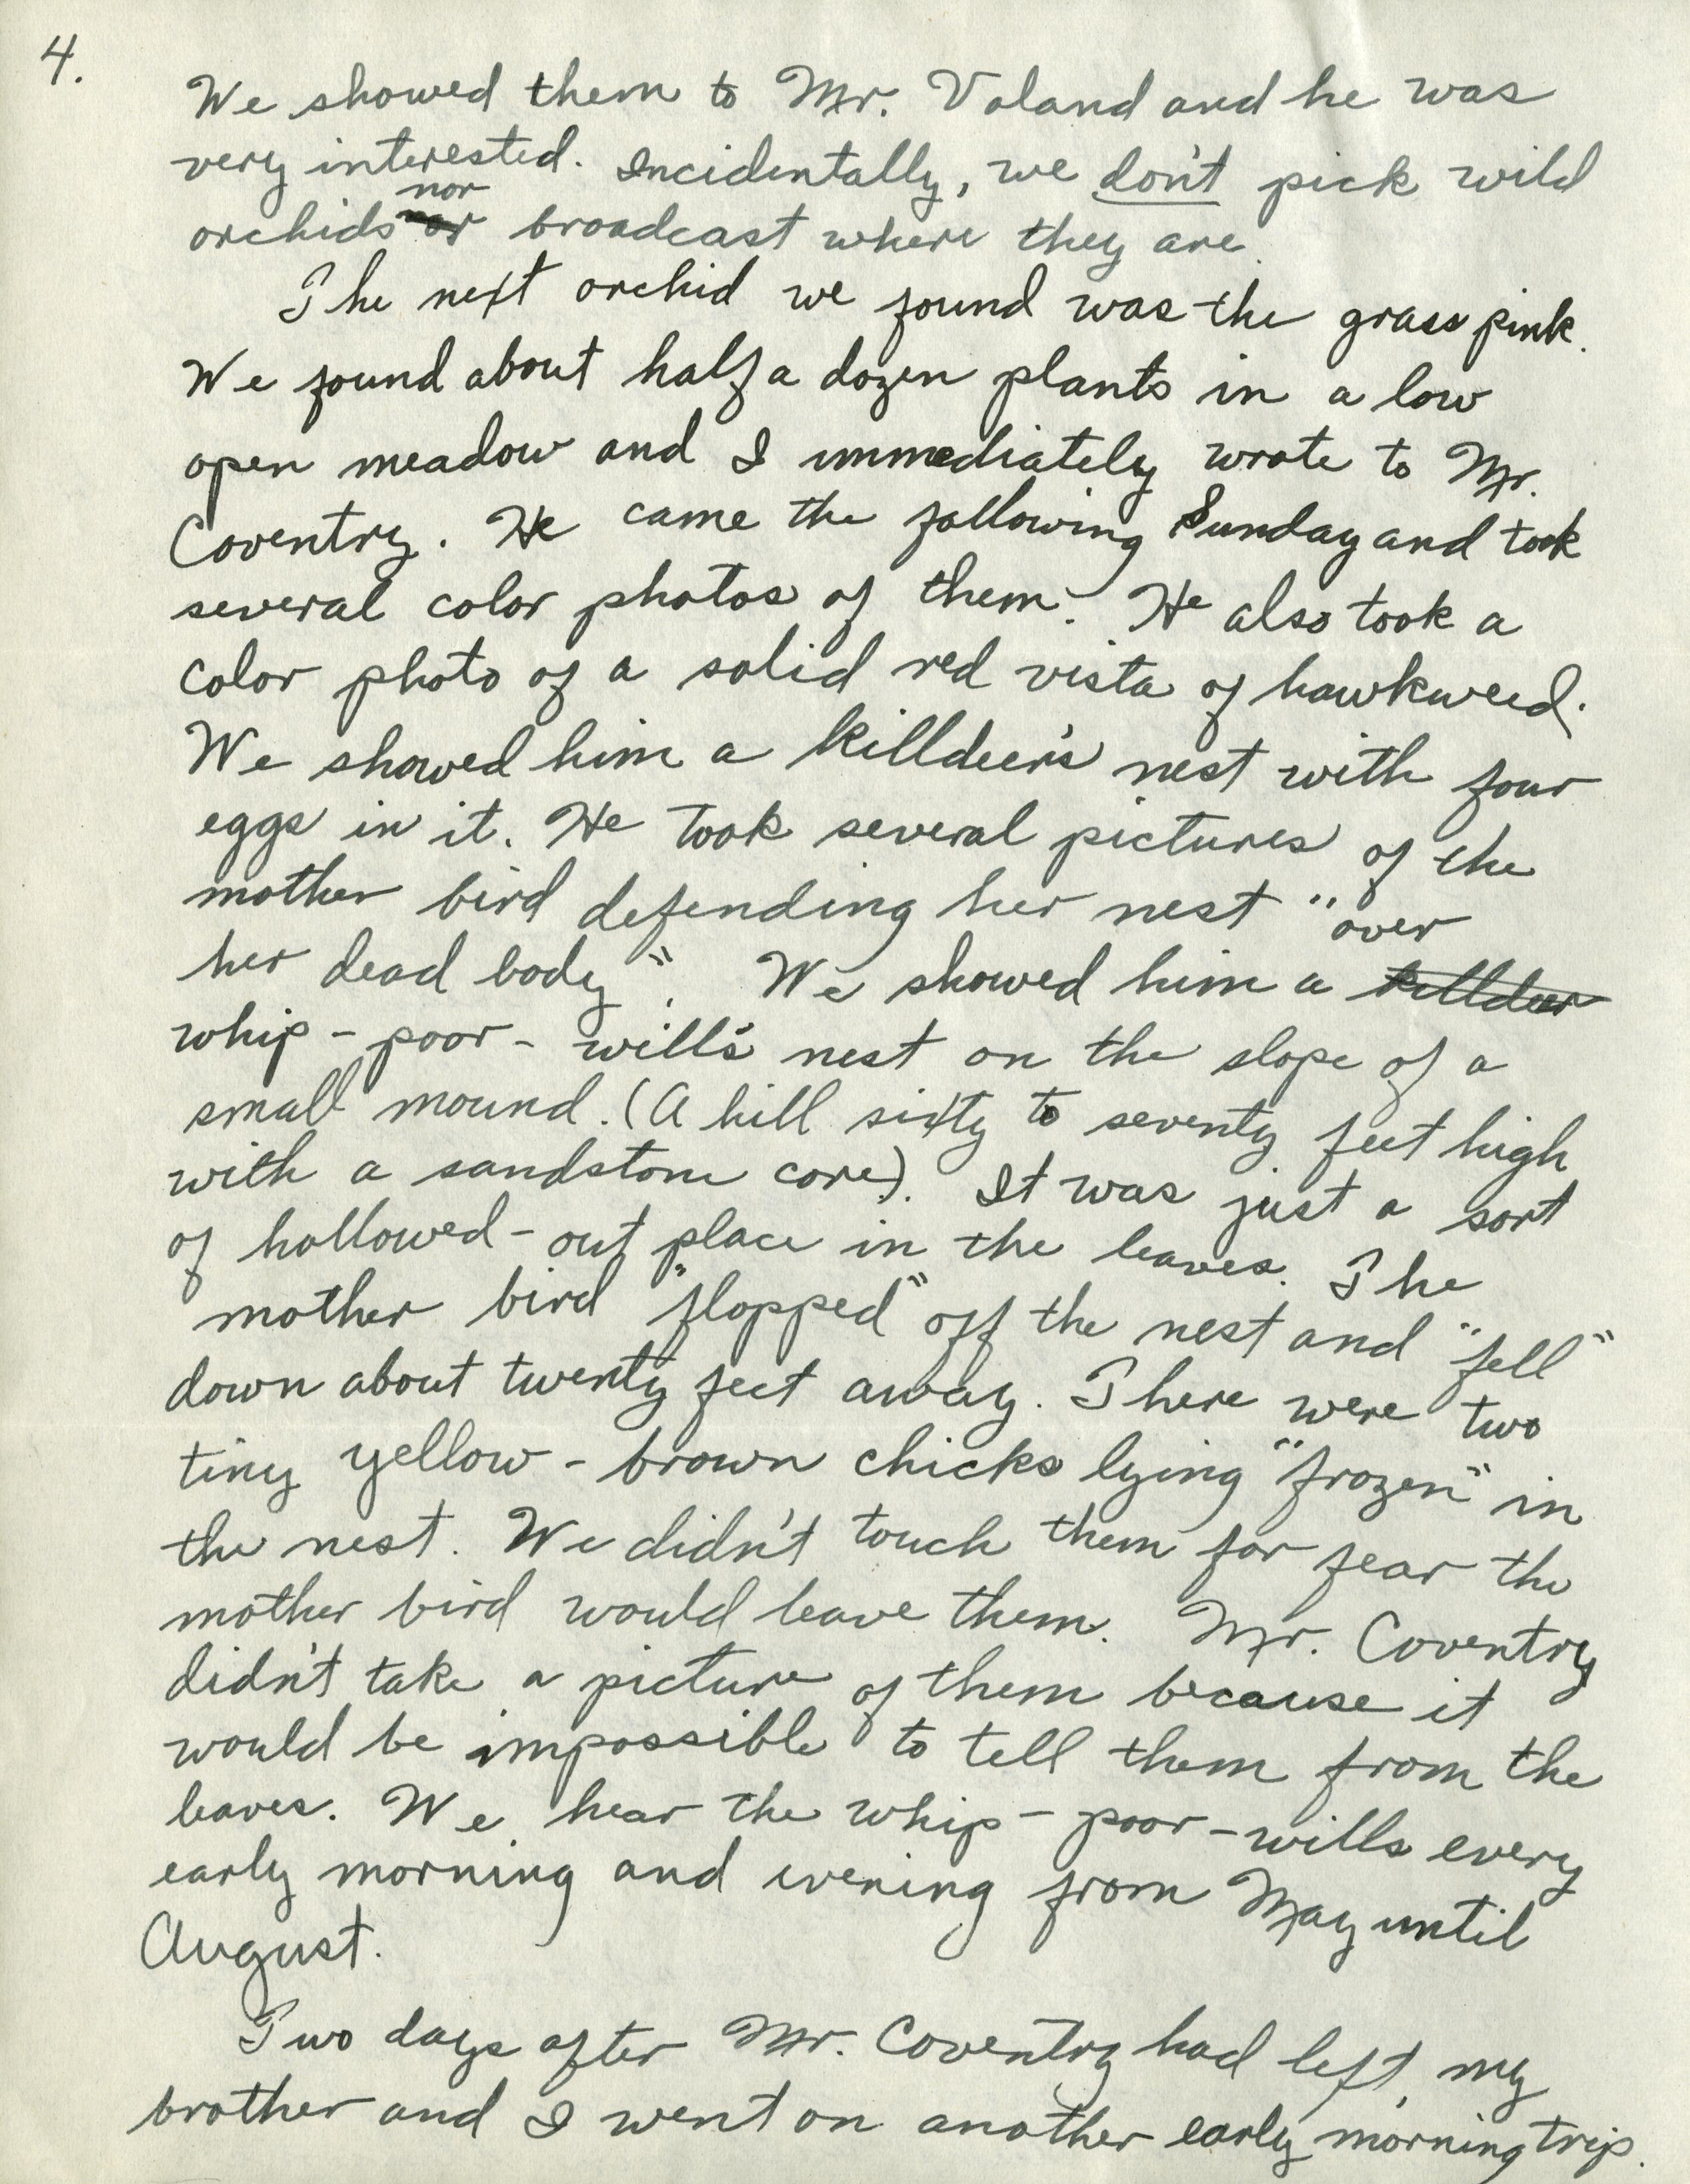 4.
We showed them to Mr. Voland and he was
very interested. Incidentally, we don't pick wild
nor
orchids or broadcast where they are.
The next orchid we found was the grass pink.
We found about half a dozen plants in a low
open meadow and I immediately wrote to Mr.
Coventry. He came the following Sunday and took
several color photos of them. He also took a
color photo of a solid red vista of hawkweed.
We showed him a killdeer's nest with four
eggs in it. He took several pictures of the
mother bird defending her nest "over
her dead body". We showed him a killdeer
whip-poor-will's nest on the slope of a
small mound. (A hill sixty to seventy feet high
with a sandstone core). It was just a sort
of hollowed-out place in the leaves. The
mother bird "flopped" off the nest and "fell"
down about twenty feet away. There were two
tiny yellow-brown chicks lying "frozen" in
the nest. We didn't touch them for fear the
mother bird would leave them. Mr. Coventry
didn't take a picture of them because it
would be impossible to tell them from the
leaves. We hear the whip-poor-wills every
early morning and evening from May until
August.
Two days after Mr. Coventry had left, my
brother and I went on another early morning trip.